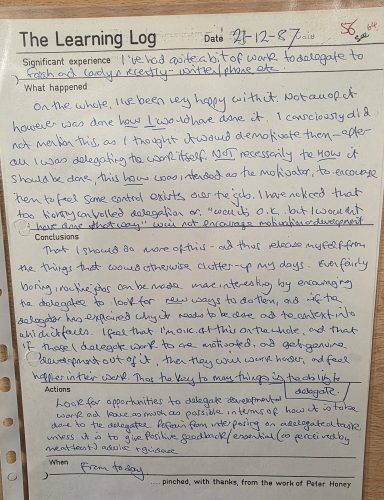 The Learning Log
Date 21-12-87
56
Significant experience I've had quite a bit of work to delegate to
and recently - write/phone etc.
What happened
On the whole, I've been very happy with it. Not all of it
however was done how I would have done it. I consciously did
not mention this, as I thought it would demotivate them - after
all I was delegating the work itself, NOT necessarily to HOW it
should be done, this how was intended as the motivator, to encourage
them to feel some control exists over the job. I have noticed that
too tightly controlled delegation or "well its O.K. but I wouldn't
have done it that way" will not encourage motivation or development
Conclusions
That I should do more of this - and thus release myself from
the things that would otherwise clutter-up my days. Even fairly
boring routine jobs can be made more interesting by encouraging
the delegatee to look for new ways to do them, and if the
delegator has explained why it needs to be done and the context into
which it falls. I feel that I'm O.K. at this on the whole, and that
if those I delegate work to are motivated, and get genuine
development out of it, then they will work harder, and feel
happier in their work. Thus the key to many things is the ability to
delegate.
Actions
Look for opportunities to delegate developmental
work and leave as much as possible in terms of how it is to be
done to the delegatee. Refrain from interposing on a delegated task
unless it is to give positive feedback/essential (as perceived by
me at least) advice + guidance
When
From today
.... pinched, with thanks, from the work of Peter Honey